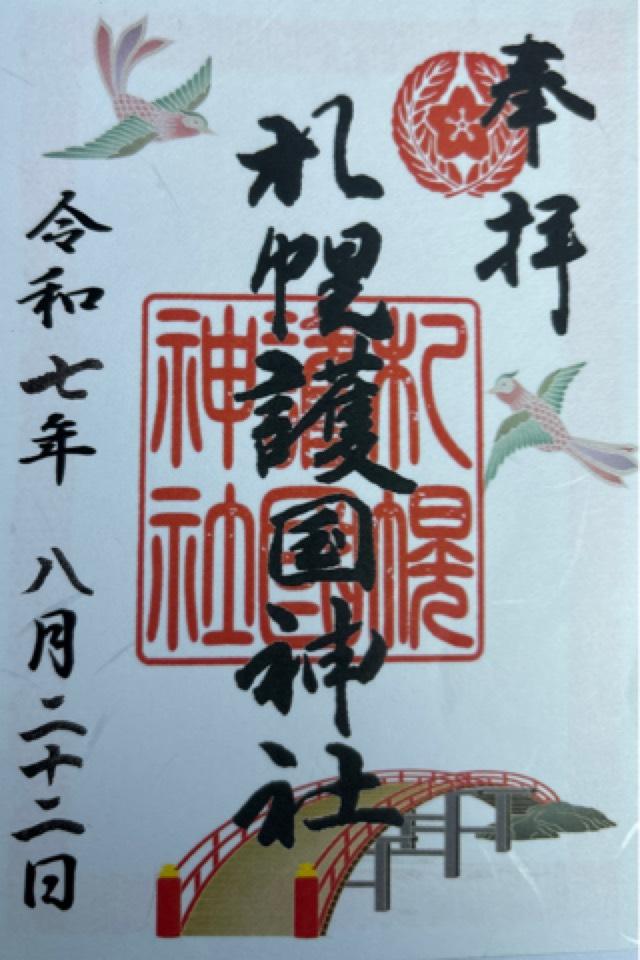 奉拝
札幌護国神社
札幌
護國
神社
令和七年 八月二十二日